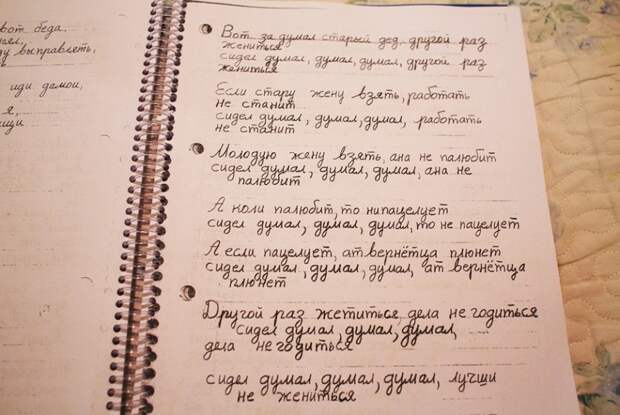 вот беда.
ду выправлеть,
иди дамои,
я,
Вот за думал старый дед, другой раз
жениться
сидел думал, думал, думал, другой раз
жениться
Если стару жену взять, работать
не станит
сидел думал, думал, думал, работать
не станит
Молодую жену взять, ана не палюбит
сидел думал, думал, думал, ана не
палюбит
А коли палюбит, то нипацелует
сидел думал, думал, думал, то не пацелует
А если пацелует, атвернётца плюнет
сидел думал, думал, думал, ат вернётца
плюнет
Другой раз жетиться, дела не годиться
сидел думал, думал, думал,
дела не годиться
сидел думал, думал, думал, лучши
не жениться